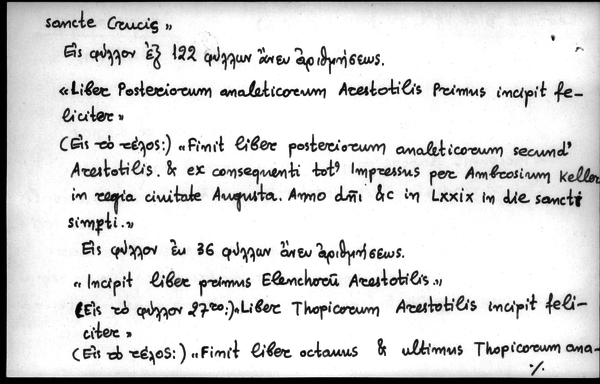 sancte Crucis»
Εἰς φύλλον ἐξ 122 φύλλων ἄνευ ἀριθμήσεως.
«Liber Posteriorum analeticorum Arestotilis Primus incipit fe-
liciter»
(Εἰς τὸ τέλος:) «Finit liber posteriorum analeticorum secund'
Arestotilis. & ex consequenti totꝰ Impressus per Ambrosium Keller
in regia ciuitate Augusta. Anno dn̄i &c in Lxxix in die sancti
simpti.»
Εἰς φύλλον ἐκ 36 φύλλων ἄνευ ἀριθμήσεως.
«Incipit liber primus Elenchorū Arestotilis.»
(Εἰς τὸ φύλλον 27ον:) «Liber Thopicorum Arestotilis incipit feli-
citer»
(Εἰς τὸ τέλος:) «Finit liber octauus & ultimus Thopicorum ana-
·/.